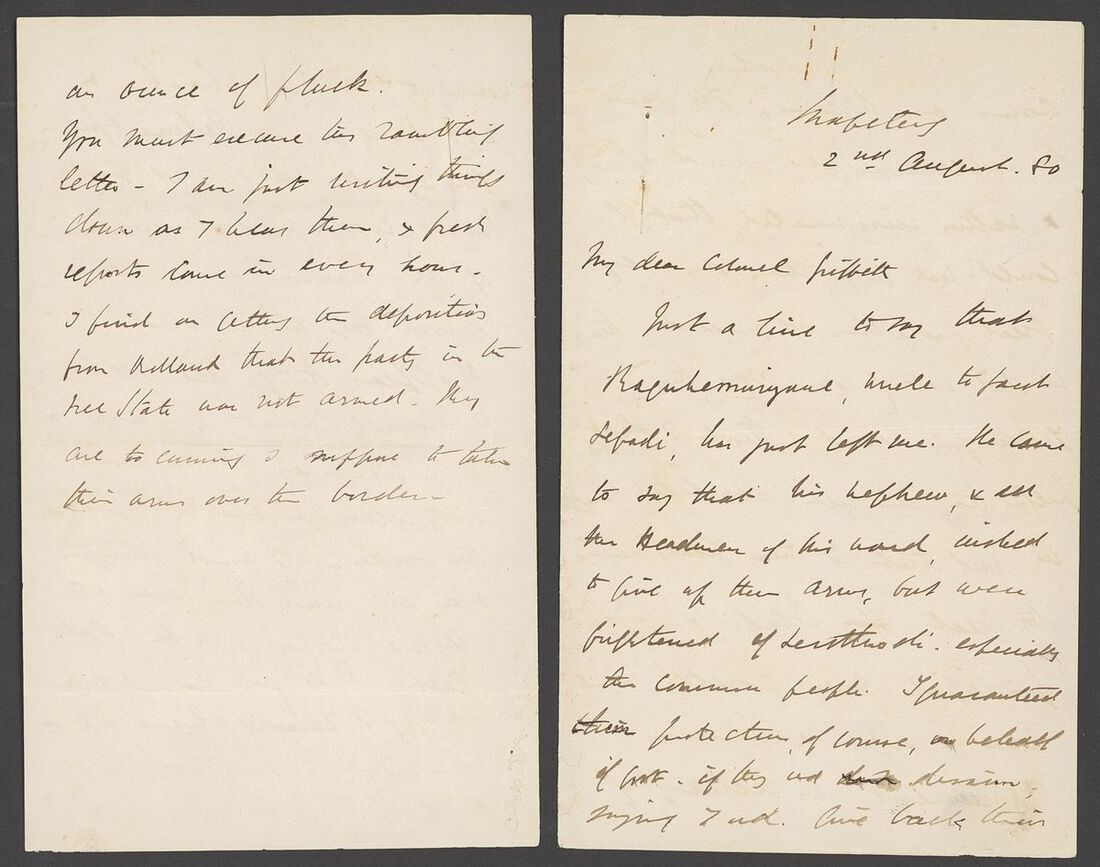 an ounce of pluck.
You must excuse this rambling
letter - I am just writing things
down as I hear them, & fresh
reports come in every hour -
I find on getting the depositions
from Rolland that the party in the
Free State was not armed - They
are too cunning I suppose to take
their arms over the border -
Mafeteng
2nd August. 80
My dear Colonel Griffith
Just a line to say that
uncle to
has just left me. He came
to say that his nephew, & all
the Headmen of his ward, wished
to give up their arms, but were
frightened of Lerothodi - especially
the common people. I guaranteed
them protection, of course, on behalf
of Govt - if they wd disarm,
saying I wd. give back their